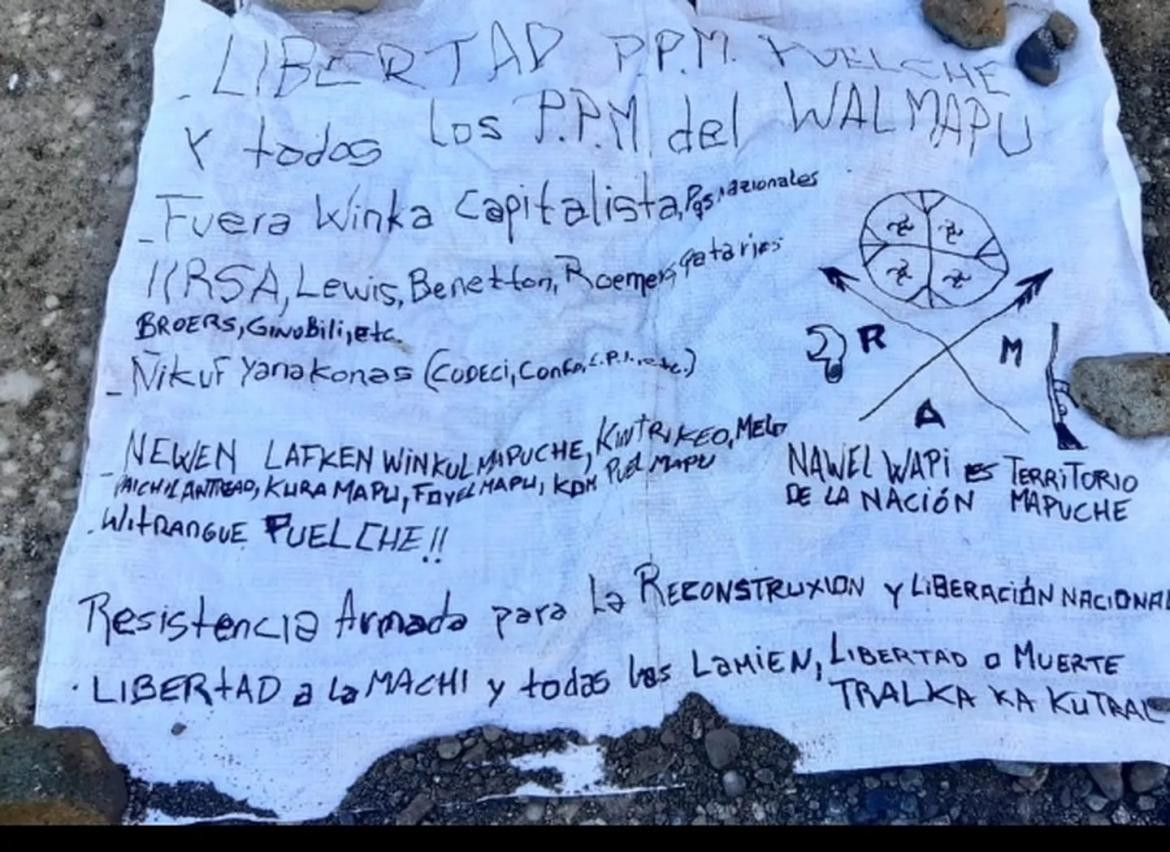 - LIBERTAD P.P.M. PUELCHE
Y todos los P.P.M del WALMAPU
- Fuera Winka Capitalista,
IIRSA, Lewis, Benetton, Roemers, qataries
BROERS, GinoBili, etc.
- Ñikuf Yanakonas (CODECI, Confa, C.P.I., etc.)
- NEWEN LAFKEN WINKUL MAPUCHE, KINTRIKEO, MELO
PAICHIL ANTREAO, KURA MAPU, FOYEL MAPU, KDM PUEL MAPU
- WITRANGUE PUELCHE!!
R M
A
NAWEL WAPI es TERRITORIO
DE LA NACIÓN MAPUCHE
Resistencia Armada para La RECONSTRUXION y LIBERACIÓN NACIONAL
· LIBERTAD a la MACHI y todas las LAMIEN, LIBERTAD o MUERTE
TRALKA KA KUTRAL